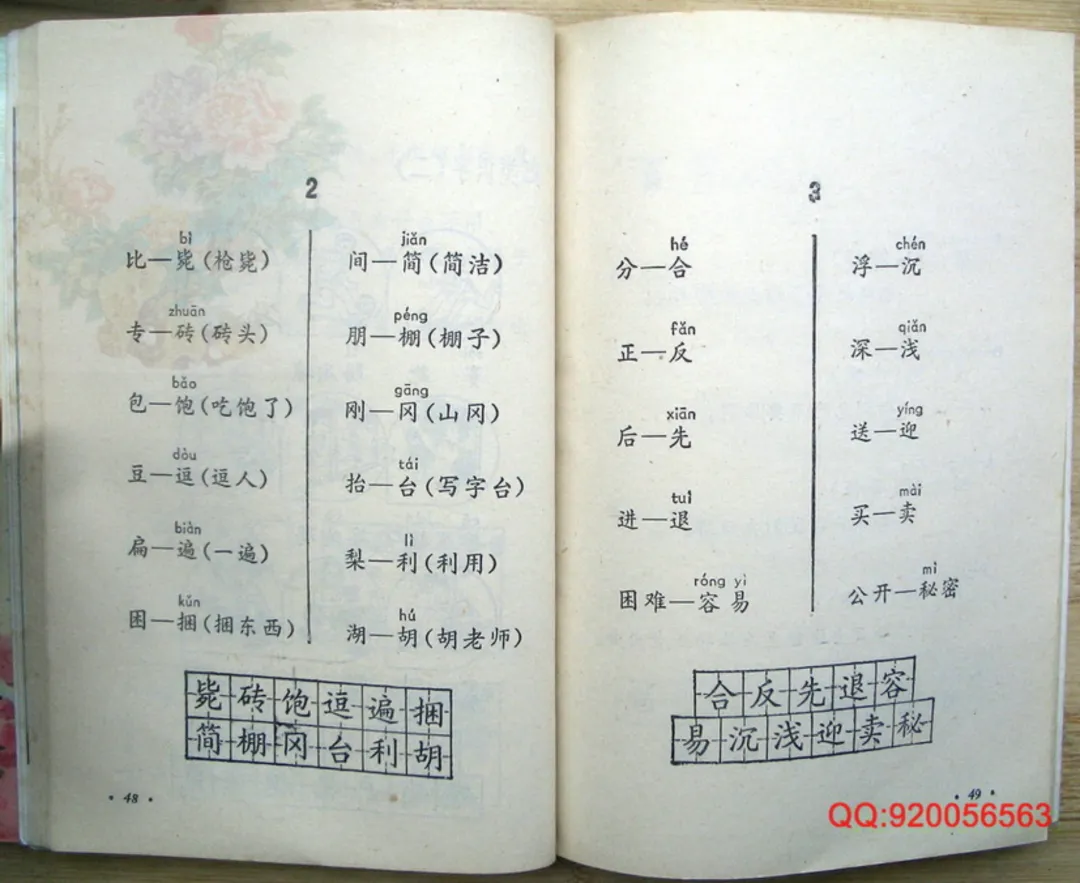 2
bì
比—毙(枪毙)
zhuān
专—砖(砖头)
bǎo
包—饱(吃饱了)
dòu
豆—逗(逗人)
biàn
扁—遍(一遍)
kǔn
困—捆(捆东西)
jiǎn
间—简(简洁)
péng
朋—棚(棚子)
gāng
刚—冈(山冈)
tái
抬—台(写字台)
lì
梨—利(利用)
hú
湖—胡(胡老师)
毙砖饱逗遍捆
简棚冈台利胡
· 48 ·
3
hé
分—合
fǎn
正—反
xiān
后—先
tuì
进—退
róng yì
困难—容易
chén
浮—沉
qiǎn
深—浅
yíng
送—迎
mài
买—卖
mì
公开—秘密
合反先退容
易沉浅迎卖秘
· 49 ·
QQ:920056563